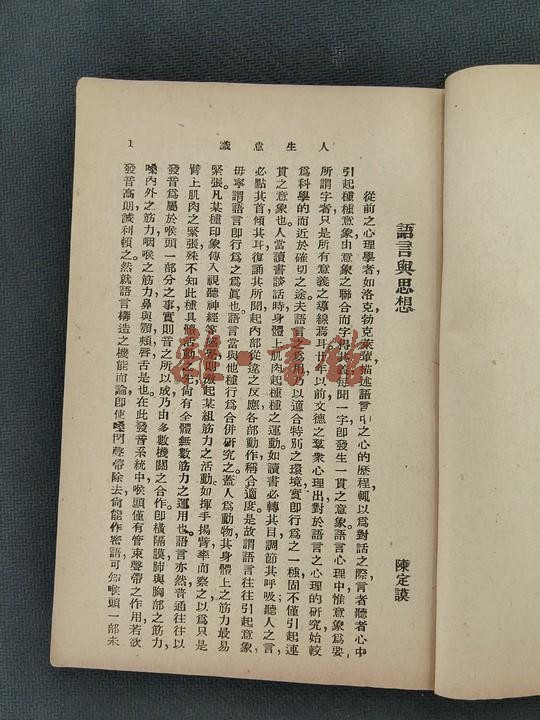 人生意識
1
語言與思想
陳定謨
從前之心理學者,如洛克勃克萊輩描述語言中之心的歷程,輒以爲對話之際,言者聽者心中
引起種種意象由意象之聯合而字得其義,每聞一字,即發生一貫之意象,語言心理中惟意象爲要
所謂字者只是所有意義之導線焉耳。廿年以前文德之羣衆心理出,對於語言之心理的研究始較
爲科學的而近於確切之途。夫語言之爲用乃以適合特別之環境,實即行爲之一種,固不僅引起連
貫之意象也。人當讀書談話時,身體上肌肉起種種之運動,如讀書必轉其目,調節其呼吸;聽人之言,
必點其首,傾其耳,復誦其所聞,起內部從違之反應,各部動作稱合適度。是故謂語言往往引起意象,
毋寧謂語言即行爲之爲眞也。語言當與他種行爲合併研究之。蓋人爲動物,其身體上之筋力最易
緊張,凡某種印象傳入視聽神經等
起某組筋力之活動,如揮手揚臂,率而察之,以爲只是
臂上肌肉之緊張,殊不知此種具體活動之先,尚有全體無數筋力之運用也。語言亦然,普通往往以
發音爲屬於喉頭一部分之事,實則音之所以成,乃由多數機關之合作,即橫隔膜肺與胸部之筋力,
嗓內外之筋力,咽喉之筋力,鼻與顎頰脣舌是也。在此發音系統中,喉頭僅有管束聲帶之作用,若欲
發音高朗,誠利賴之。然就語言構造之機能而論,即使嗓門聲帶除去,尚能作密語,可知喉頭一部未